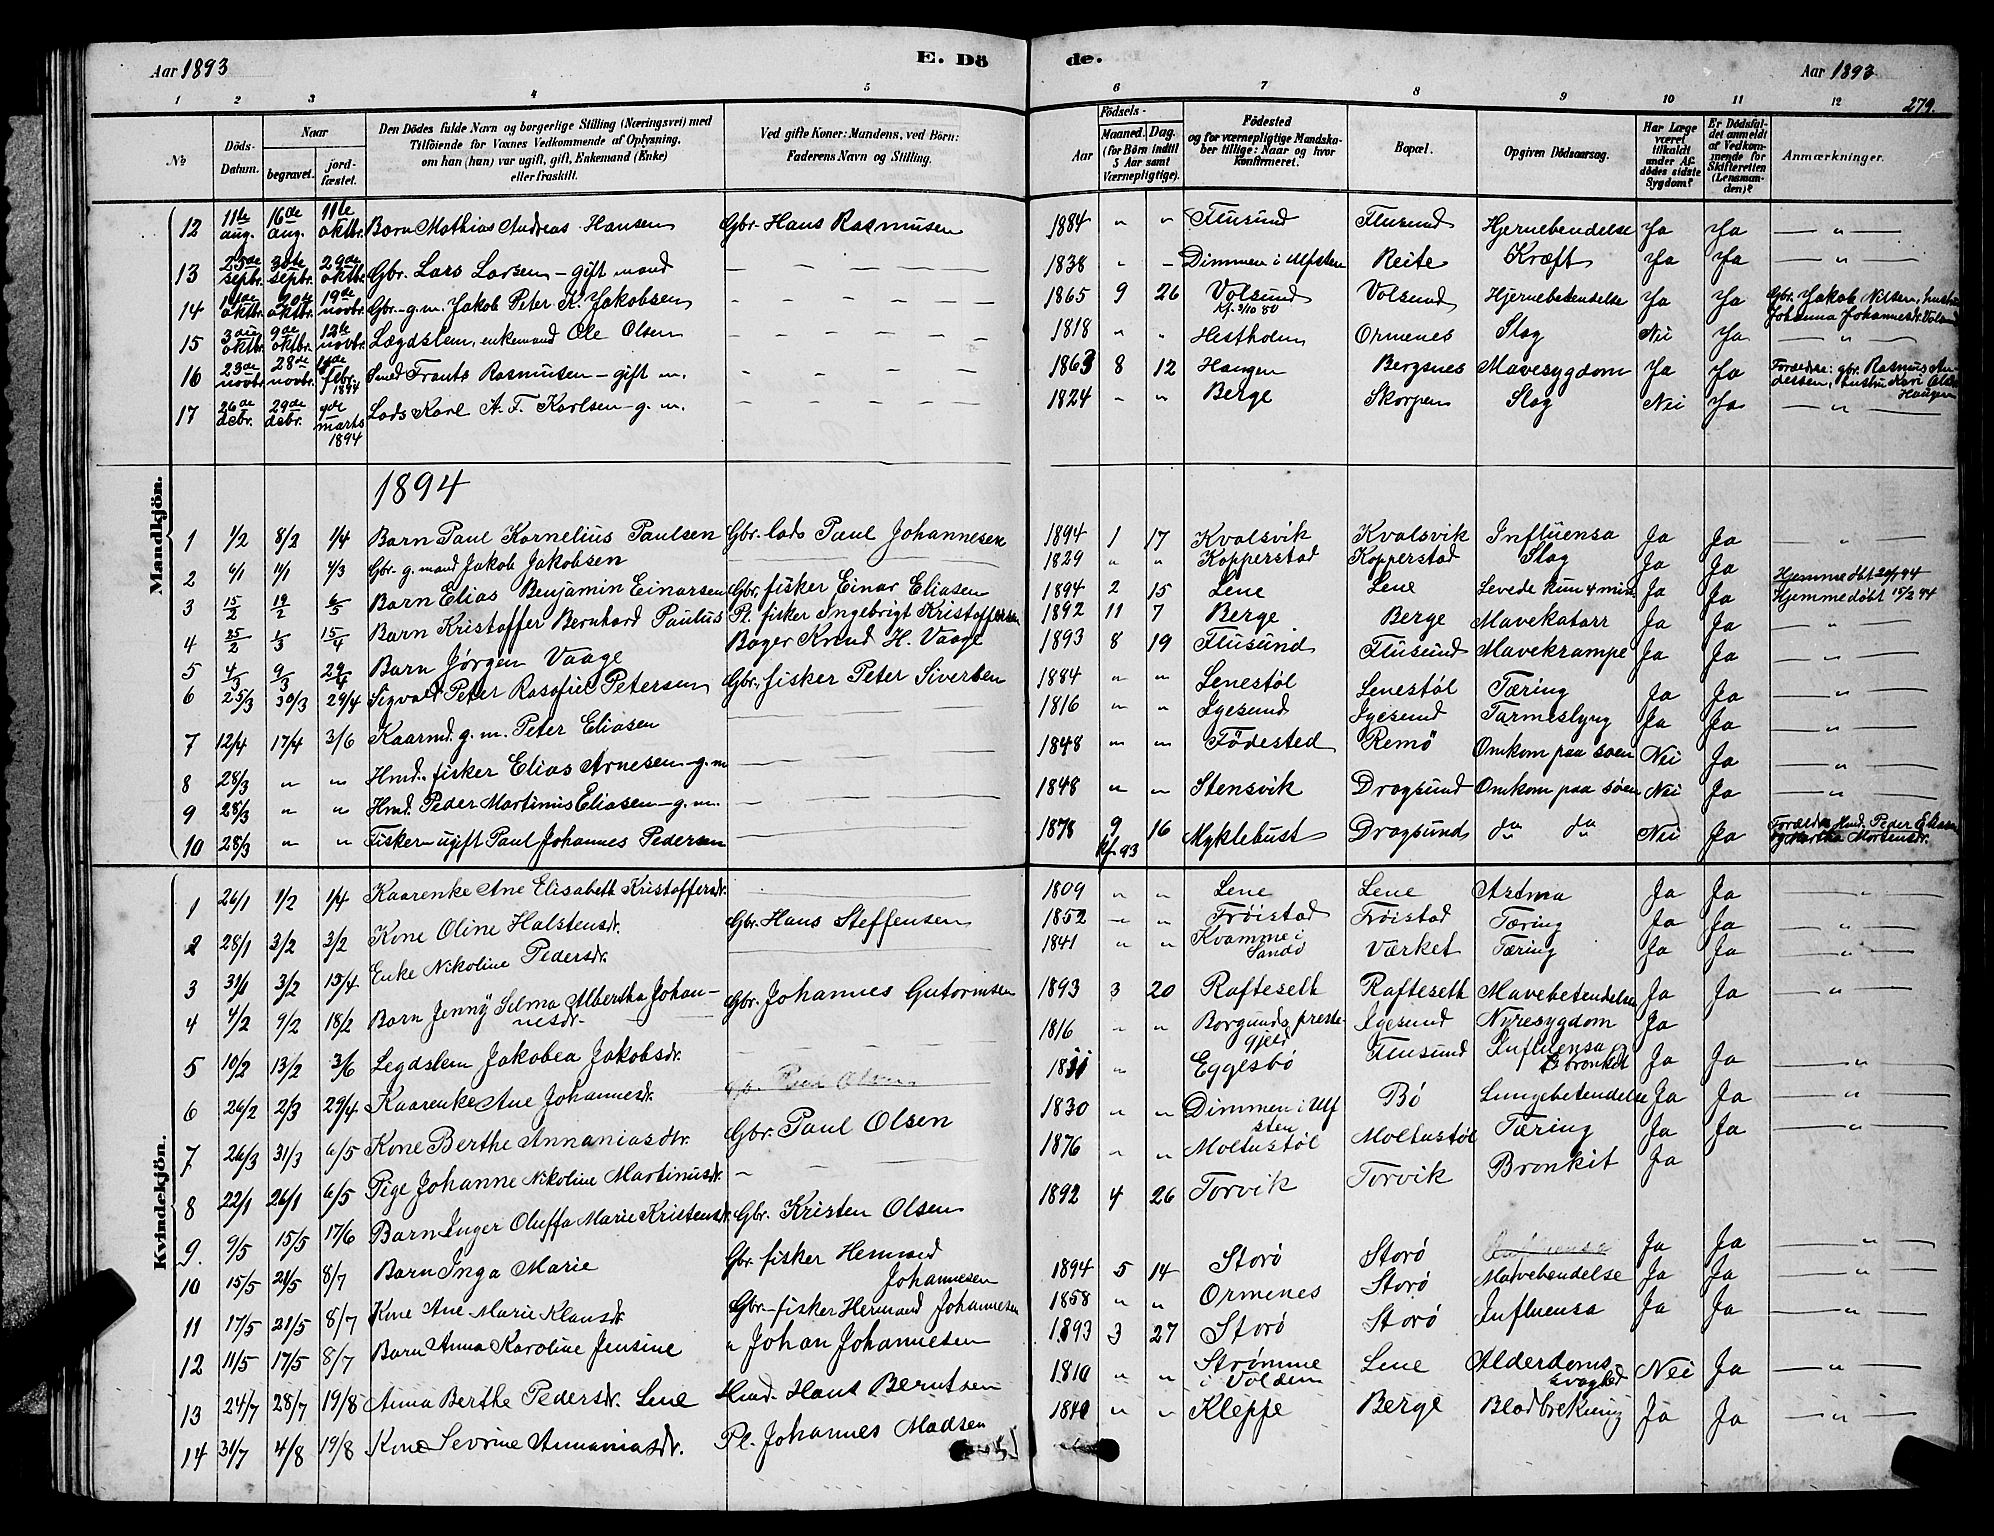 Aar 1893 E. Dö de. Aar 1893
279.
1 2 3 4 5 6 7 8 9 10 11 12
№ Döds-Datum. Naar begravet. jord-fæstet. Den Dödes fulde Navn og borgerlige Stilling (Næringsvei) med Tilföiende for Voxnes Vedkommende af Oplysning, om han (hun) var ugift, gift, Enkemand (Enke) eller fraskilt. Ved gifte Koner: Mandens, ved Börn: Faderens Navn og Stilling. Födsels- Aar Maaned. Dag. (for Börn indtil 5 Aar samt Værnepligtige). Födested og for værnepligtige Mandskaber tillige: Naar og hvor Konfirmeret. Bopæl. Opgiven Dödsaarsag. Har Læge været tilkaldt under Afdödes sidste Sygdom? Er Dödsfaldet anmeldt af Vedkommende for Skifteretten (Lensmanden)? Anmærkninger.
Mandkjön.
12 11te aug. 16de aug. 11te oktbr. Barn Mathias Andreas Hansen Gbr. Hans Rasmusen 1884 " " Flusund Flusund Hjernebendelse Ja Ja — " —
13 23de septbr. 30te septbr. 29de oktbr. Gbr. Lars Larsen – gift mand — — — — 1838 " - Dimmen i Ulfsten Reite Kræft Ja Ja — " —
14 oktbr. oktbr. 19de novbr. Gbr. – g.m. Jakob Peter K. Jakobsen — — — — 1865 9 26 Volsund Kf. 3/10 80 Volsund Hjernebetendelse Ja Ja Gbr. Jakob Nilsen, hustru Johanna Johannesdr. Volsund
15 3die oktbr. 9de oktbr. 12te novbr. Lægdslem, enkemand Ole Olsen — — — — 1818 " " Hestholm Ormenes Slag Nei Ja — " —
16 23de novbr. 28de novbr. febr. 1894 Smed Frants Rasmusen – gift m. — — — — 1863 8 12 Haugen Bergsnes Mavesygdom Ja Ja Forældre: gbr. Rasmus Andersen, hustru Kari Olsdr. Haugen
17 26de debr. 29de debr. 4de marts 1894 Lods Karl A. F. Karlsen – g. m. — — — — 1824 " " Berge Skorpen Slag Nei Ja — " —
1894
1 1/2 8/2 1/4 Barn Paul Kornelius Paulsen Gbr. lods Paul Johannesen 1894 1 17 Kvalsvik Kvalsvik Influensa Ja Ja — " —
2 6/1 11/1 4/3 Gbr. g. mand Jakob Jakobsen — 1829 " " Kopperstad Kopperstad Slag Ja Ja Hjemmedöbt 20/1 94
3 15/2 19/2 6/5 Barn Elias Benjamin Einarsen Gbr. fisker Einar Eliasen 1894 2 15 Lene Lene Levede kun 4 min Ja Ja Hjemmedöbt 15/2 94
4 25/2 1/3 15/4 Barn Kristoffer Bernhard Paulus Pl. fisker Ingebrigt Kristoffersen 1892 11 7 Berge Berge Mavekatarr Ja Ja — " —
5 4/3 9/3 29/4 Barn Jørgen Vaage Bager Knud H. Vaage 1893 8 19 Flusund Flusund Mavekrampe Ja Ja — " —
6 25/3 30/3 29/4 Sigvald Peter Petersen Gbr. fisker Peter Sivertsen 1884 " " Lenestøl Lenestøl Tæring Ja Ja — " —
7 12/4 17/4 3/6 Kaarmd. g. m. Peter Eliasen — 1816 " " Igesund Igesund Tarmeslyng Ja Ja — " —
8 28/3 " " Hmd. fisker Elias Arnesen – g. m — 1848 " " Födested Remö Omkom paa søen Nei Ja — " —
9 28/3 " " Hmd. Peder Martinus Eliasen – g. m. — 1848 " " Stensvik Dragsund Omkom paa søen Nei Ja — " —
10 28/3 " " Fisker – ugift Paul Johannes Pedersen — 1878 9 16 Kf. 93 Myklebust Dragsund do do Nei Ja Forældre Hmd. Peder og Martha Mortensdr.
Kvindekjön.
1 26/1 1/2 1/4 Kaarenke Ane Elisabeth Kristoffersdr. — 1809 " " Lene Lene Astma Ja Ja — " —
2 28/1 3/2 3/2 Kone Oline Halstensdr. Gbr. Hans Steffensen 1852 " " Frøistad Frøistad Tæring Ja Ja — " —
3 31/1 3/2 15/4 Enke Nikoline Pedersdr. — 1841 " " Kvamme i Sandø Værket Tæring Ja Ja — " —
4 4/2 9/2 18/2 Barn Jenny Selma Albertha Johannesdr. Gbr. Johannes Gutormsen 1893 3 20 Rafteseth Rafteseth Mavebetendelse Ja Ja — " —
5 10/2 13/2 3/6 Legdslem Jakobea Jakobsdr. — — — 1816 " " Borgunds prestegjeld Igesund Nyresygdom Ja
6 26/2 2/3 29/4 Kaarenke Ane Johannesdr. Paul Olsen " Eggesbø Flusund Influensa & bronkit Ja Ja — " —
7 26/3 31/3 6/5 Kone Berthe Annaniasdtr. Gbr. Paul Olsen 1830 " " Dimmen i Ulfsten Bø Lungebetendelse Ja Ja — " —
8 22/1 26/1 6/5 Pige Johanne Nikoline Martinusdr. — — — 1876 " " Moltustøl Moltustøl Tæring Ja Ja — " —
9 9/5 15/5 17/6 Barn Inger Oluffa Marie Kristensdr. Gbr. Kristen Olsen 1892 4 26 Torvik Torvik Bronkit Ja
10 15/5 21/5 8/7 Barn Inga Marie Gbr. fisker Hermand Johannesen 1894 5 14 Storø Storø Influensa Ja Ja — " —
11 17/5 21/5 8/7 Kone Ane Marie Klausdr. Gbr. – fisker Hermand Johannesen 1858 " " Ormenes Storø Mavebendelse Ja Ja — " —
12 11/5 17/5 8/7 Barn Anna Karoline Jensine " Johan Johannesen 1893 3 27 Storø Storø Influensa Ja Ja — " —
13 24/7 28/7 19/8 Anna Berthe Pedersdr. Lene Hmd. Hans Berntsen 1810 " " Strømme i Volden Lene Alderdoms svaghed Nei Ja — " —
14 31/7 4/8 19/8 Kone Sevrine Annaniasdr. Pl. Johannes Madsen 1840 " " Kleppe Berge Blodbrekning Ja Ja — " —